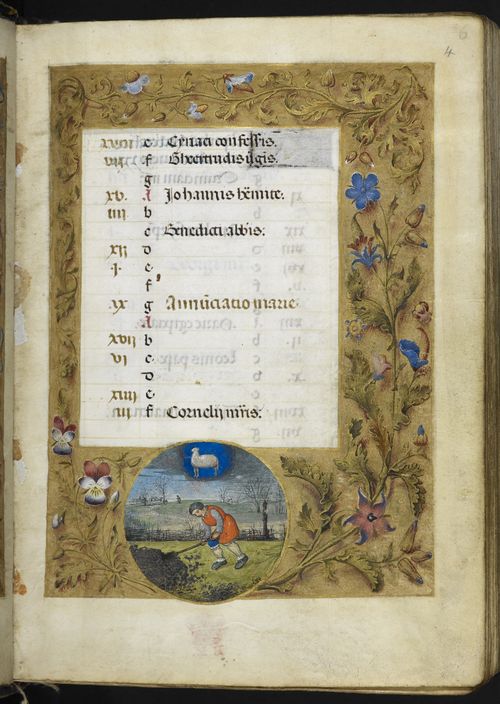 4
xviii e Cyriaci confessis.
vii f Ghertrudis v̄gis.
g
xv. A Johannis h̄emite.
iiii b
c Benedicti abb̄is.
xii d
.i. e
f
.ix g Annūciatio marie.
A
xvii b
vi c
d
xiiii e
iii f Cornelij m̄ris.